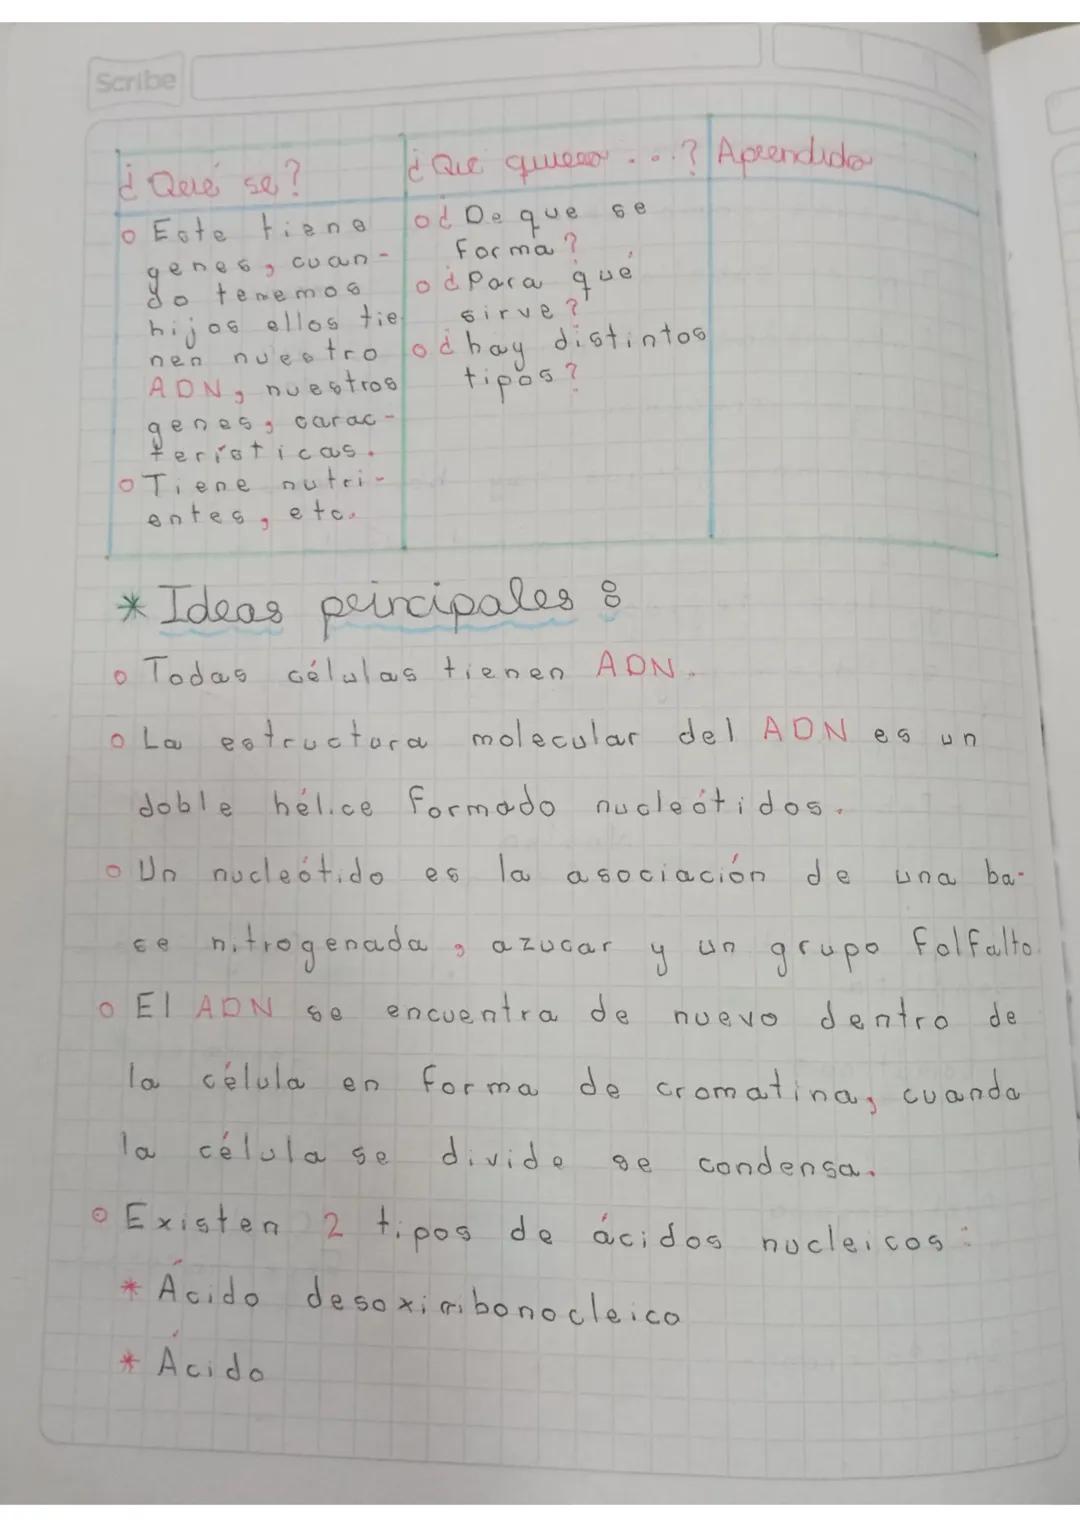 Scribe
¿Qué se?
¿Que quiero...?
Aprendido
o Este tiene
genes, cuan-
do tenemos
hijos ellos tie
nen nuestro
ADN, nuestros
genes, carac-
terísticas.
o Tiene nutri-
entes, etc.
o ¿De que se
forma?
o ¿Para qué
sirve?
o ¿hay distintos
tipos?
* Ideas principales:
o Todas células tienen ADN.
o La estructura molecular del ADN es un
doble hélice formado nucleótidos.
o Un nucleótido es la asociación de una ba-
se nitrogenada, azucar y un grupo folfalto
o El ADN se encuentra de nuevo dentro de
la célula en forma de cromatina, cuanda
la célula se divide se condensa.
o Existen 2 tipos de ácidos nucleicos:
* Ácido desoxirribonocleico
* Ácido